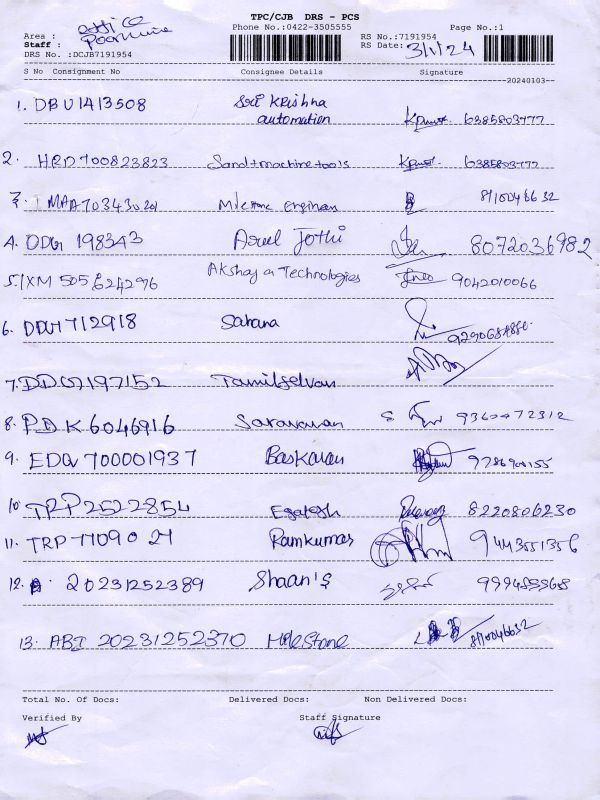 TPC/CJB DRS - PCS
Phone No.:0422-3505555 Page No.:1
Area :
Staff : Poornima
RS No.:7191954
RS Date: 3/1/24
DRS No. :DCJB7191954
S No Consignment No Consignee Details Signature
20240103
1. DBU1413508 Sri Krishna automation 6385803777
2. HRD700823823 Sand+machine tools 6385803777
3. MAA703430201 Milestone Engineer 8110046632
4. ODG 198343 Arul Jothi 8072036982
5. IXM 505624296 Akshaya Technologies 9042010066
6. DDG1712918 Sahana
7. DDG197152 Tamilselvan
8. PDK6046916 Saravanan 9360472312
9. EDG 700001937 Baskaran 9786900155
10 TRP2522854 Egatesh 8220806230
11. TRP 7709021 Ramkumar 9443551356
12. 20231252389 Shaan's
13. ABI 20231252370 Milestone 8110046632
Total No. Of Docs: Delivered Docs: Non Delivered Docs:
Verified By Staff Signature